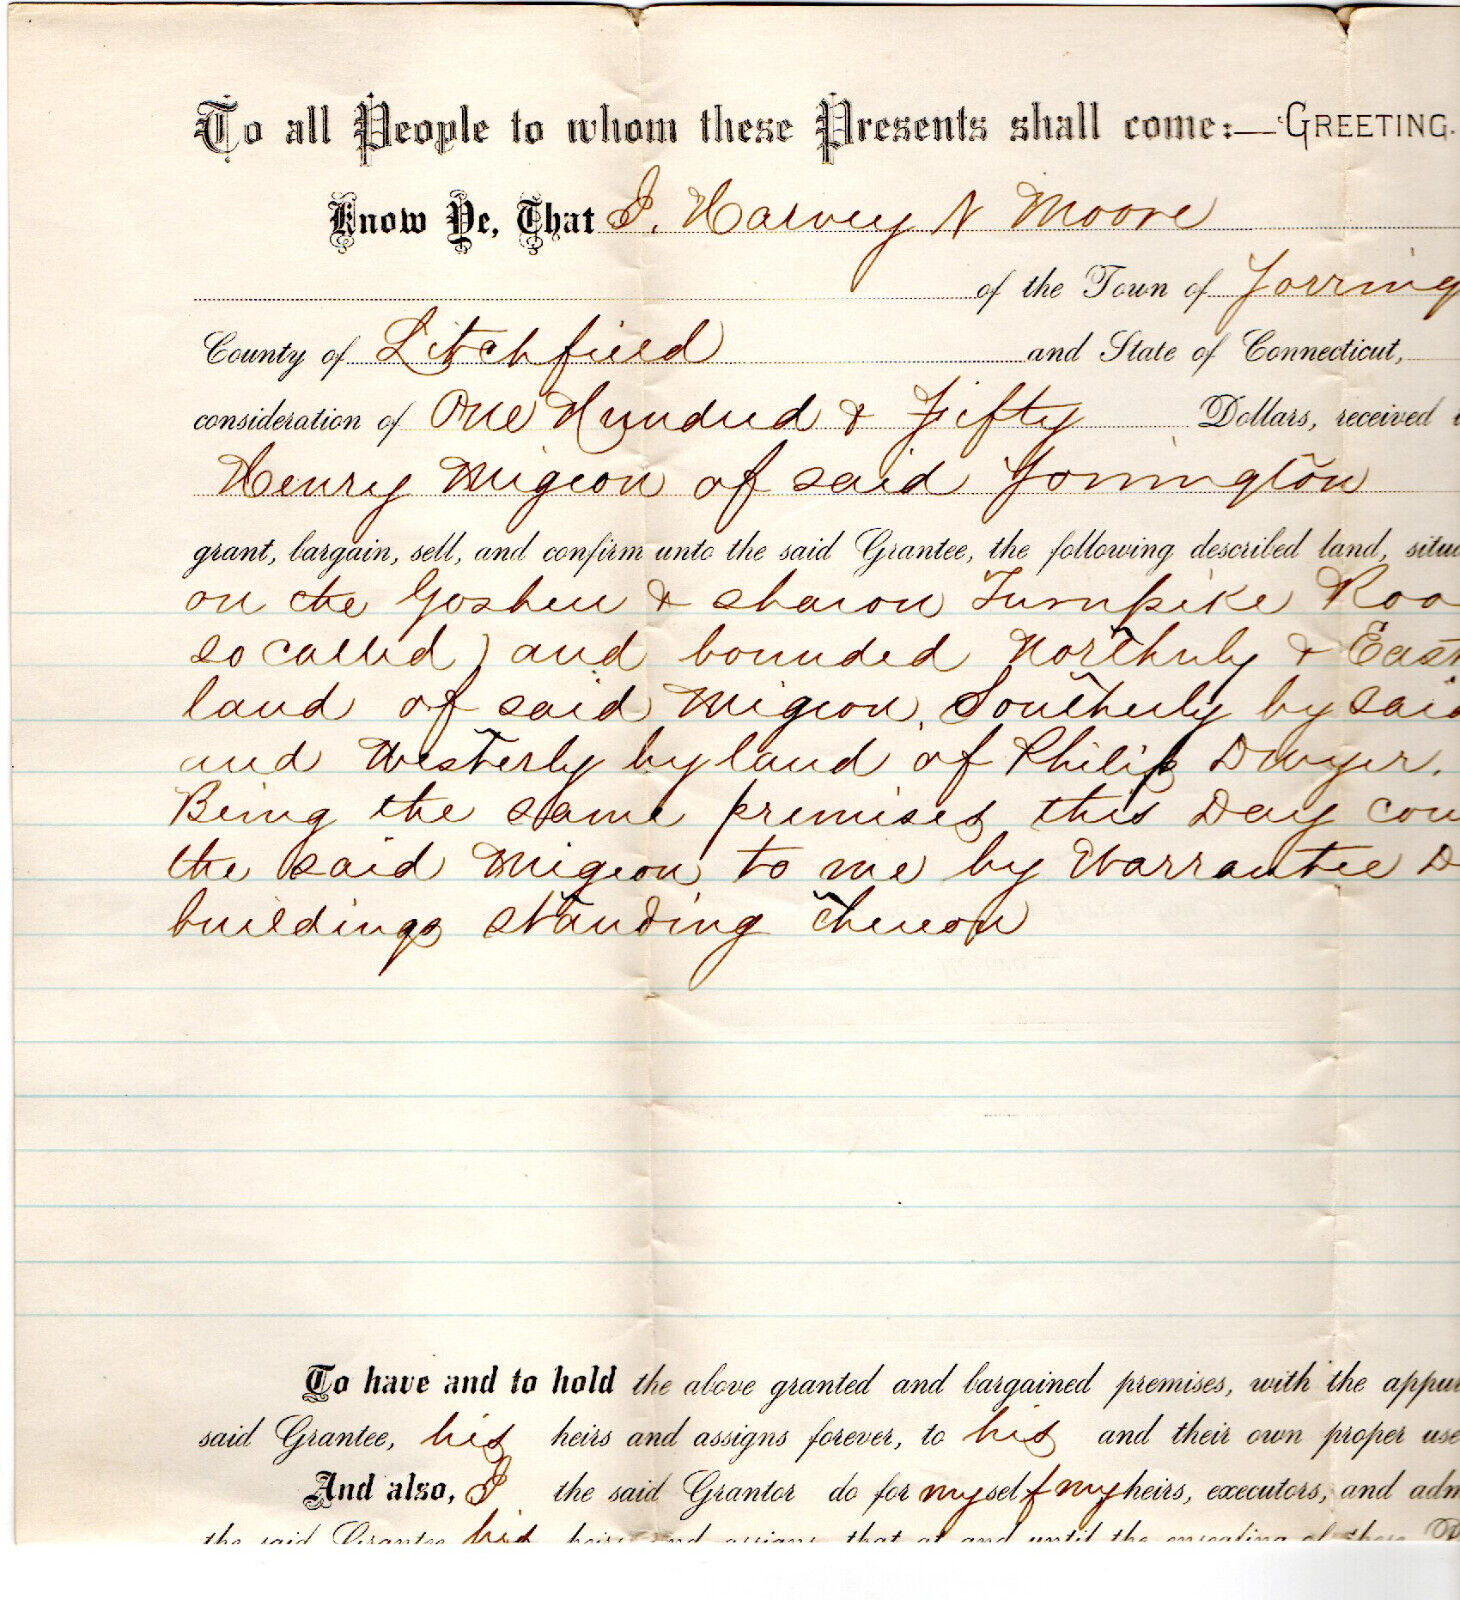 To all People to whom these Presents shall come:—GREETING.
Know Ye, That I, Harvey N Moore
of the Town of Torring
County of Litchfield and State of Connecticut,
consideration of One Hundred & Fifty Dollars, received
Henry Migeon of said Torrington
grant, bargain, sell, and confirm unto the said Grantee, the following described land, situ
on the Goshen & Sharon Turnpike Roa
so called) and bounded Northerly & East
land of said Migeon, Southerly by said
and Westerly by land of Philip Dwyer.
Being the same premises this Day con
the said Migeon to me by Warrantee D
buildings standing thereon
To have and to hold the above granted and bargained premises, with the appur
said Grantee, his heirs and assigns forever, to his and their own proper use
And also, I the said Grantor do for myself my heirs, executors, and adm
the said Grantee his heirs and assigns, that at and until the ensealing of these